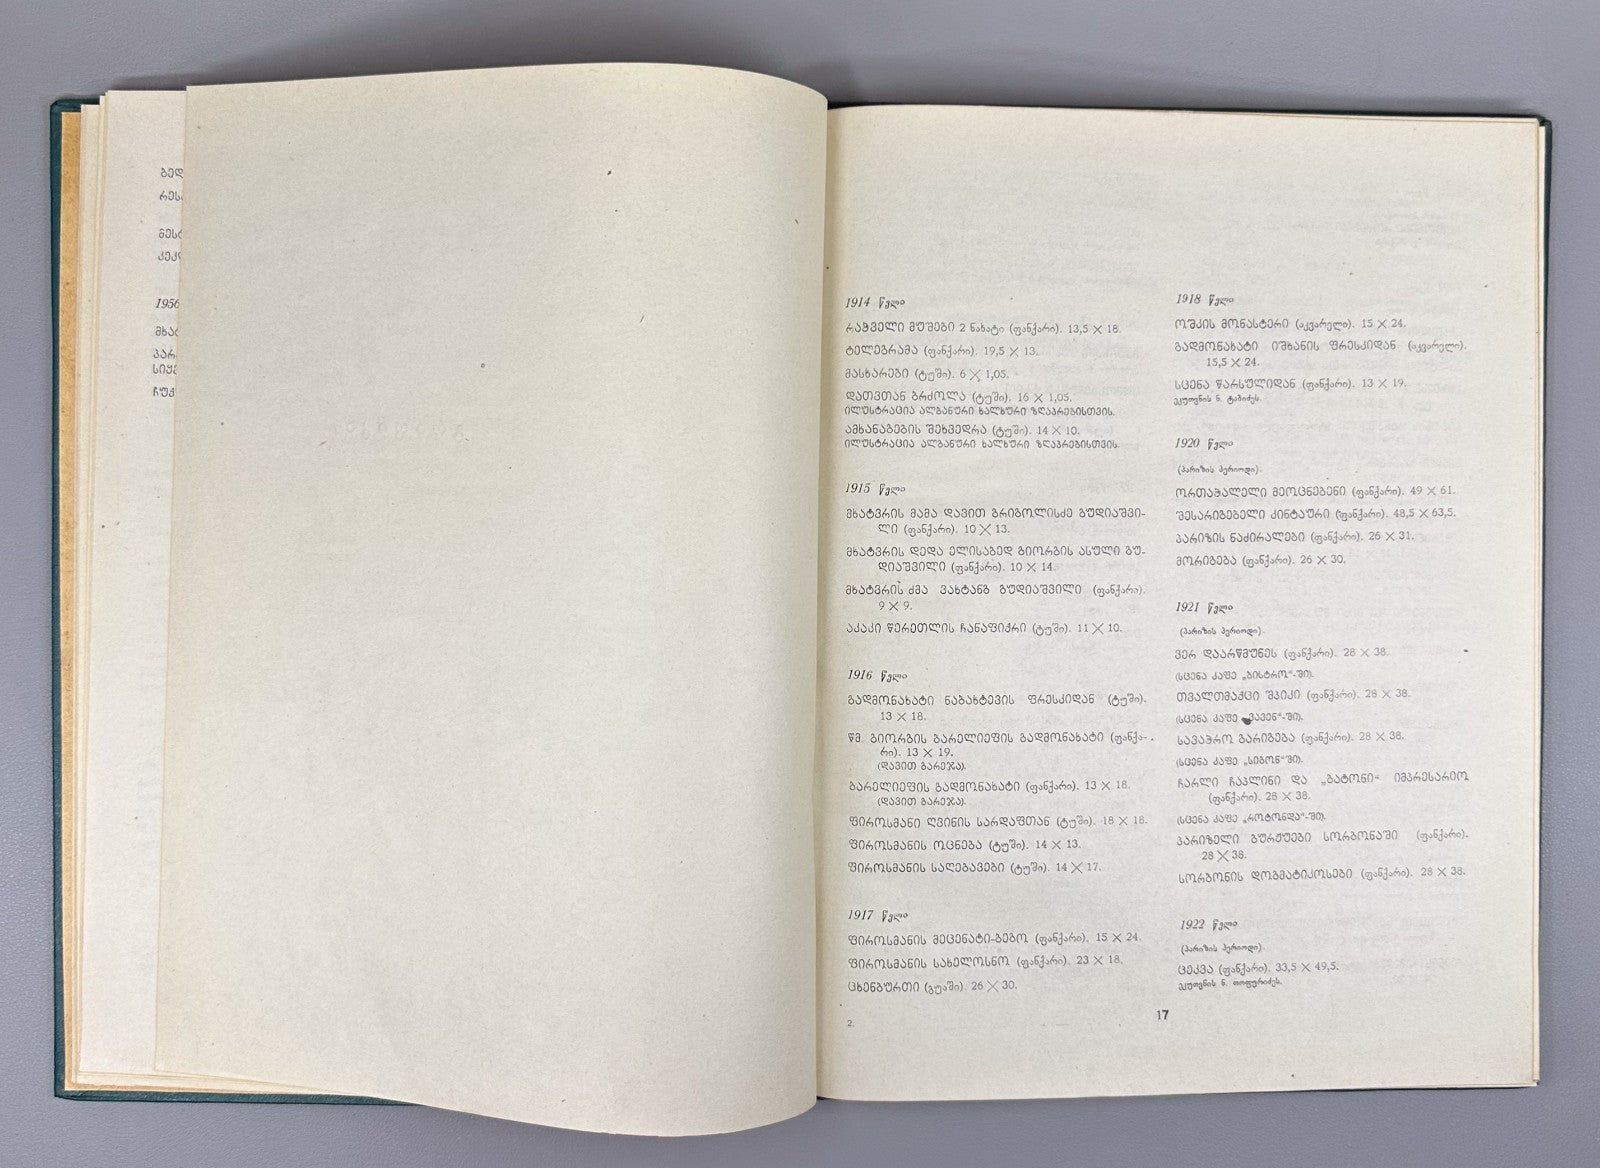 ბედ
რესა
ნესტ
კეკლ
1956
მხატ
პარ
სიჟე
ჩუქ
1914 წელი
რაჭველი მუშები 2 ნახატი (ფანქარი). 13,5 × 18.
ტელეგრამა (ფანქარი). 19,5 × 13.
მასხარები (ტუში). 6 × 1,05.
დათვთან ბრძოლა (ტუში). 16 × 1,05.
ილუსტრაცია ალბანური ხალხური ზღაპრებისთვის.
ამხანაგების შეხვედრა (ტუში). 14 × 10.
ილუსტრაცია ალბანური ხალხური ზღაპრებისთვის.
1915 წელი
მხატვრის მამა დავით გრიგოლისძე გუდიაშვი-
ლი (ფანქარი). 10 × 13.
მხატვრის დედა ელისაბედ გიორგის ასული გუ-
დიაშვილი (ფანქარი). 10 × 14.
მხატვრის ძმა ვახტანგ გუდიაშვილი (ფანქარი).
9 × 9.
აკაკი წერეთლის ჩანაფიქრი (ტუში). 11 × 10.
1916 წელი
გადმონახატი ნაბახტევის ფრესკიდან (ტუში).
13 × 18.
წმ. გიორგის ბარელიეფის გადმონახატი (ფანქა-
რი). 13 × 19.
(დავით გარეჯა).
ბარელიეფის გადმონახატი (ფანქარი). 13 × 18.
(დავით გარეჯა).
ფიროსმანი ღვინის სარდაფთან (ტუში). 18 × 18.
ფიროსმანის ოცნება (ტუში). 14 × 13.
ფიროსმანის საღებავები (ტუში). 14 × 17.
1917 წელი
ფიროსმანის მეცენატი-ბეგო (ფანქარი). 15 × 24.
ფიროსმანის სახელოსნო (ფანქარი). 23 × 18.
ცხენბურთი (გუაში). 26 × 30.
2.
1918 წელი
ოშკის მონასტერი (აკვარელი). 15 × 24.
გადმონახატი იშხანის ფრესკიდან (აკვარელი).
15,5 × 24.
სცენა წარსულიდან (ფანქარი). 13 × 19.
ეკუთვნის ნ. ტაბიძეს.
1920 წელი
(პარიზის პერიოდი).
ორთაჭალელი მეოცნებენი (ფანქარი). 49 × 61.
შესარიგებელი კინტაური (ფანქარი). 48,5 × 63,5.
პარიზის ნაძირალები (ფანქარი). 26 × 31.
მორიგება (ფანქარი). 26 × 30.
1921 წელი
(პარიზის პერიოდი).
ვერ დაარწმუნეს (ფანქარი). 28 × 38.
(სცენა კაფე „ბისტრო“-ში).
თვალთმაქცი შპიკი (ფანქარი). 28 × 38.
(სცენა კაფე „ვავენ“-ში).
სავაჭრო გარიგება (ფანქარი). 28 × 38.
(სცენა კაფე „სიგონ“ში).
ჩარლი ჩაპლინი და „ბატონი“ იმპრესარიო
(ფანქარი). 28 × 38.
(სცენა კაფე „როტონდა“-ში).
პარიზელი ბურჟუები სორბონაში (ფანქარი).
28 × 38.
სორბონის დოგმატიკოსები (ფანქარი). 28 × 38.
1922 წელი
(პარიზის პერიოდი).
ცეკვა (ფანქარი). 33,5 × 49,5.
ეკუთვნის ნ. თოფურიძეს.
17